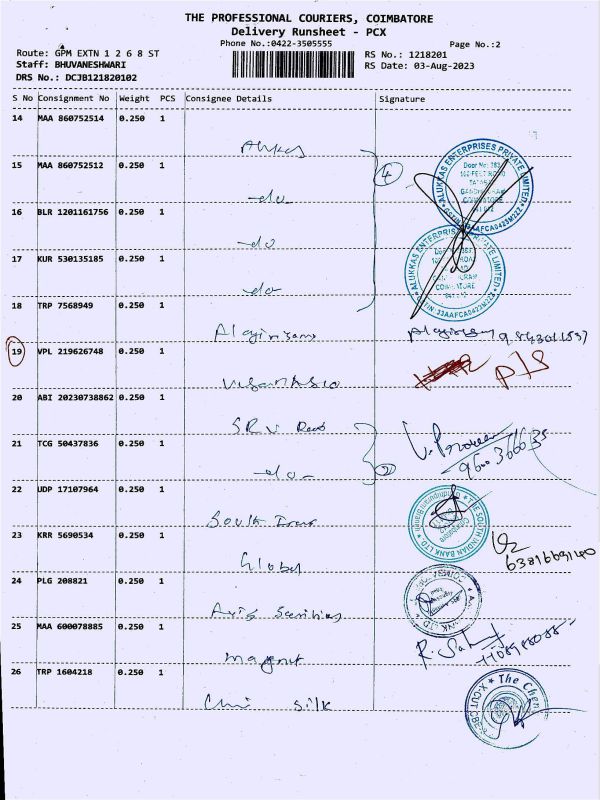 THE PROFESSIONAL COURIERS, COIMBATORE
Delivery Runsheet - PCX
Phone No.:0422-3505555
Page No.:2
Route: GPM EXTN 1 2 6 8 ST
RS No.: 1218201
Staff: BHUVANESHWARI
RS Date: 03-Aug-2023
DRS No.: DCJB121820102
S No Consignment No Weight PCS Consignee Details Signature
14 MAA 860752514 0.250 1
15 MAA 860752512 0.250 1
-do-
16 BLR 1201161756 0.250 1
-do
17 KUR 530135185 0.250 1
-do-
4
ALUKKAS ENTERPRISES PRIVATE LIMITED
ALUKKAS ENTERPRISES PRIVATE LIMITED
18 TRP 7568949 0.250 1
19 VPL 219626748 0.250 1
20 ABI 20230738862 0.250 1
21 TCG 50437836 0.250 1
-do-
2
22 UDP 17107964 0.250 1
South
THE SOUTH INDIAN BANK LTD
23 KRR 5690534 0.250 1
Global
24 PLG 208821 0.250 1
Axis
25 MAA 600078885 0.250 1
magnet
26 TRP 1604218 0.250 1
silk
The Chen